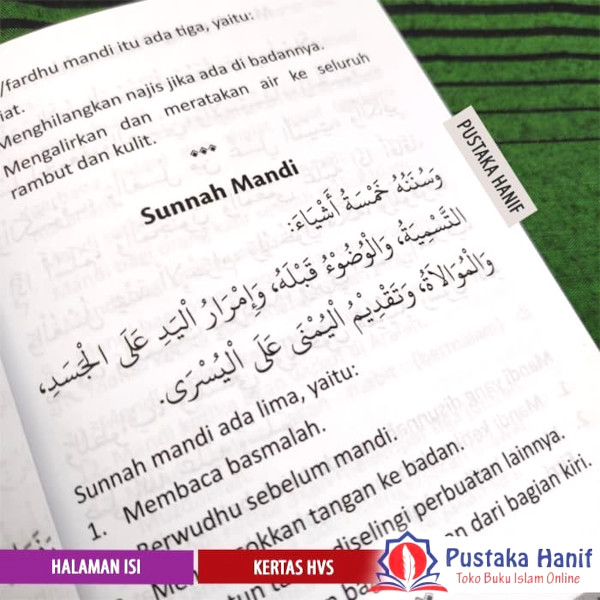 /fardhu mandi itu ada tiga, yaitu:
iat.
Menghilangkan najis jika ada di badannya.
Mengalirkan dan meratakan air ke seluruh
rambut dan kulit.
Sunnah Mandi
وَسُنَنُهُ خَمْسَةُ أَشْيَاءَ:
التَّسْمِيَةُ، وَالْوُضُوْءُ قَبْلَهُ، وَإِمْرَارُ الْيَدِ عَلَى الْجَسَدِ،
وَالْمُوَالَاةُ، وَتَقْدِيْمُ الْيُمْنَى عَلَى الْيُسْرَى.
Sunnah mandi ada lima, yaitu:
1. Membaca basmalah.
Berwudhu sebelum mandi.
okkan tangan ke badan.
tun ta diselingi perbuatan lainnya.
n ba an dari bagian kiri.
PUSTAKA HANIF
HALAMAN ISI
KERTAS HVS
Pustaka Hanif
Toko Buku Islam Online